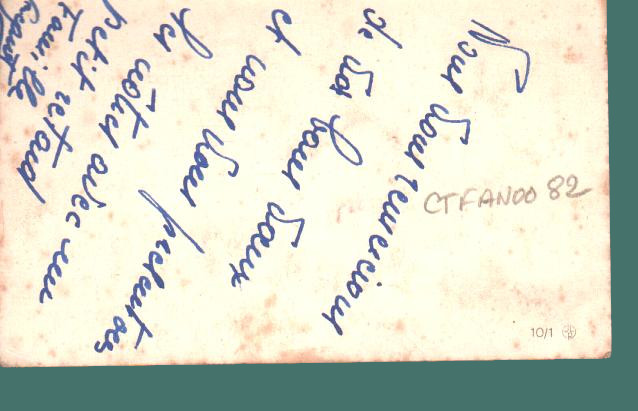 Nous vous remercions
de vos bons vœux
et nous vous présentons
les nôtres avec un
petit retard
Famille
CTFANOO 82
10/1